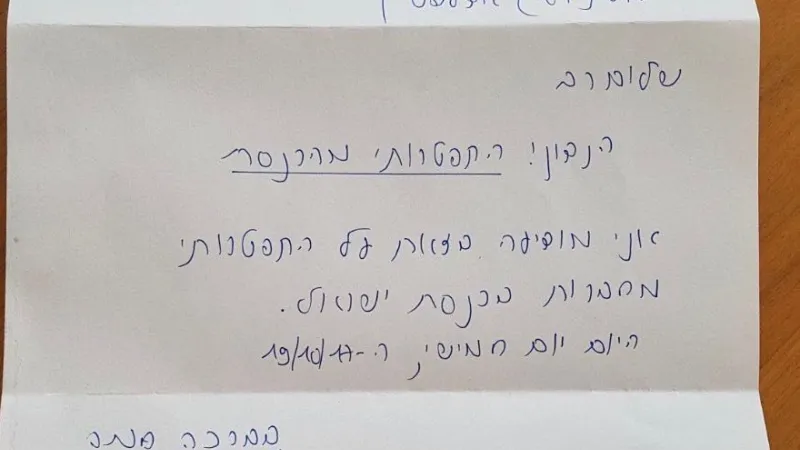 שלום רב
הנדון: התפטרותי מהכנסת
אני מודיעה בזאת על התפטרותי
מחברות בכנסת ישראל.
היום יום חמישי, ה-19/10/17
בברכה